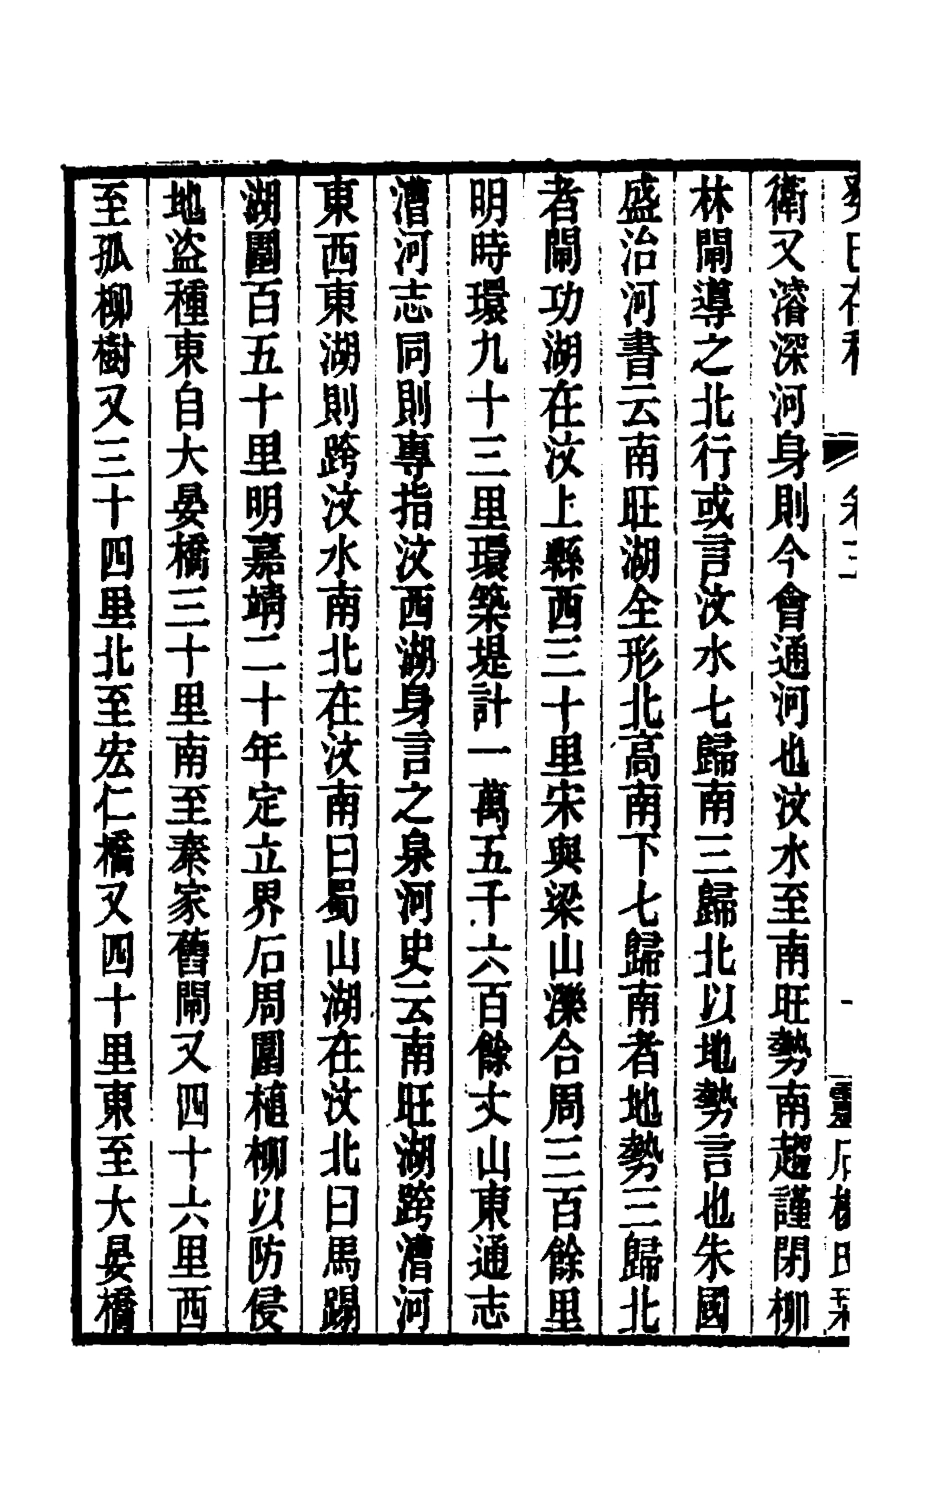 癸巳存稿 卷 靈石楊氏
衛又濬深河身則今會通河也汶水至南旺勢南趨謹閉柳
林閘導之北行或言汶水七歸南三歸北以地勢言也朱國
盛治河書云南旺湖全形北高南下七歸南者地勢三歸北
者閘功湖在汶上縣西三十里宋與梁山濼合周三百餘里
明時環九十三里環築堤計一萬五千六百餘丈山東通志
漕河志同則專指汶西湖身言之泉河史云南旺湖跨漕河
東西東湖則跨汶水南北在汶南曰蜀山湖在汶北曰馬踢
湖圍百五十里明嘉靖二十年定立界石周圍植柳以防侵
地盜種東自大晏橋三十里南至秦家舊閘又四十六里西
至孤柳樹又三十四里北至宏仁橋又四十里東至大晏橋